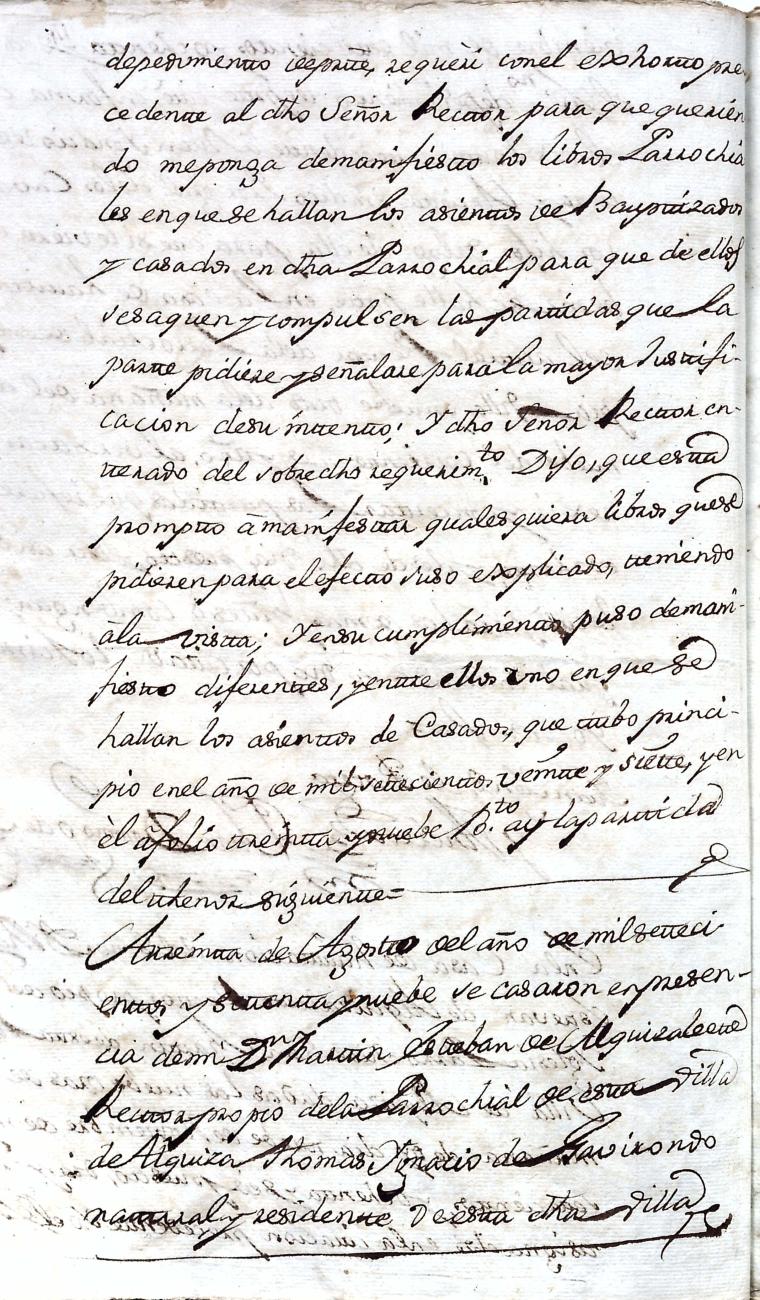 depedimento de parte, requeri con el exhorto pre-
cedente al dho Señor Rector para que querien
do meponga demanifiesto los libros Parrochia
les en que se hallan los asientos de Bauptizados
y casados en dha Parrochial para que de ellos
se saquen y compulsen las partidas que la
parte pidiere y señalare para la mayor Justifi-
cacion desu intento; Y dho Señor Rector en-
terado del sobredho requerim.to Dijo, que esta
prompto â manifestar qualesquiera libros quese
pidieren para el efecto suso explicado, teniendo
âla vista; Y ensu cumplimiento puso demani-
fiesto diferentes, y entre ellos uno en que se
hallan los asientos de Casados, que tubo princi-
pio enel año de mil setecientos veinte y siete, y en
èl â folio treinta y nuebe B.to ay la partida
del thenor siguiente=
A treinta de Agosto del año de mil seteci-
entos y setenta y nuebe se casaron en presen-
cia demi Dn Martin Esteban de Alguizalete
Rector propio dela Parrochial de esta Villa
de Alquiza Thomas Ygnacio de Garirondo
natural y residente de esta dha Villa